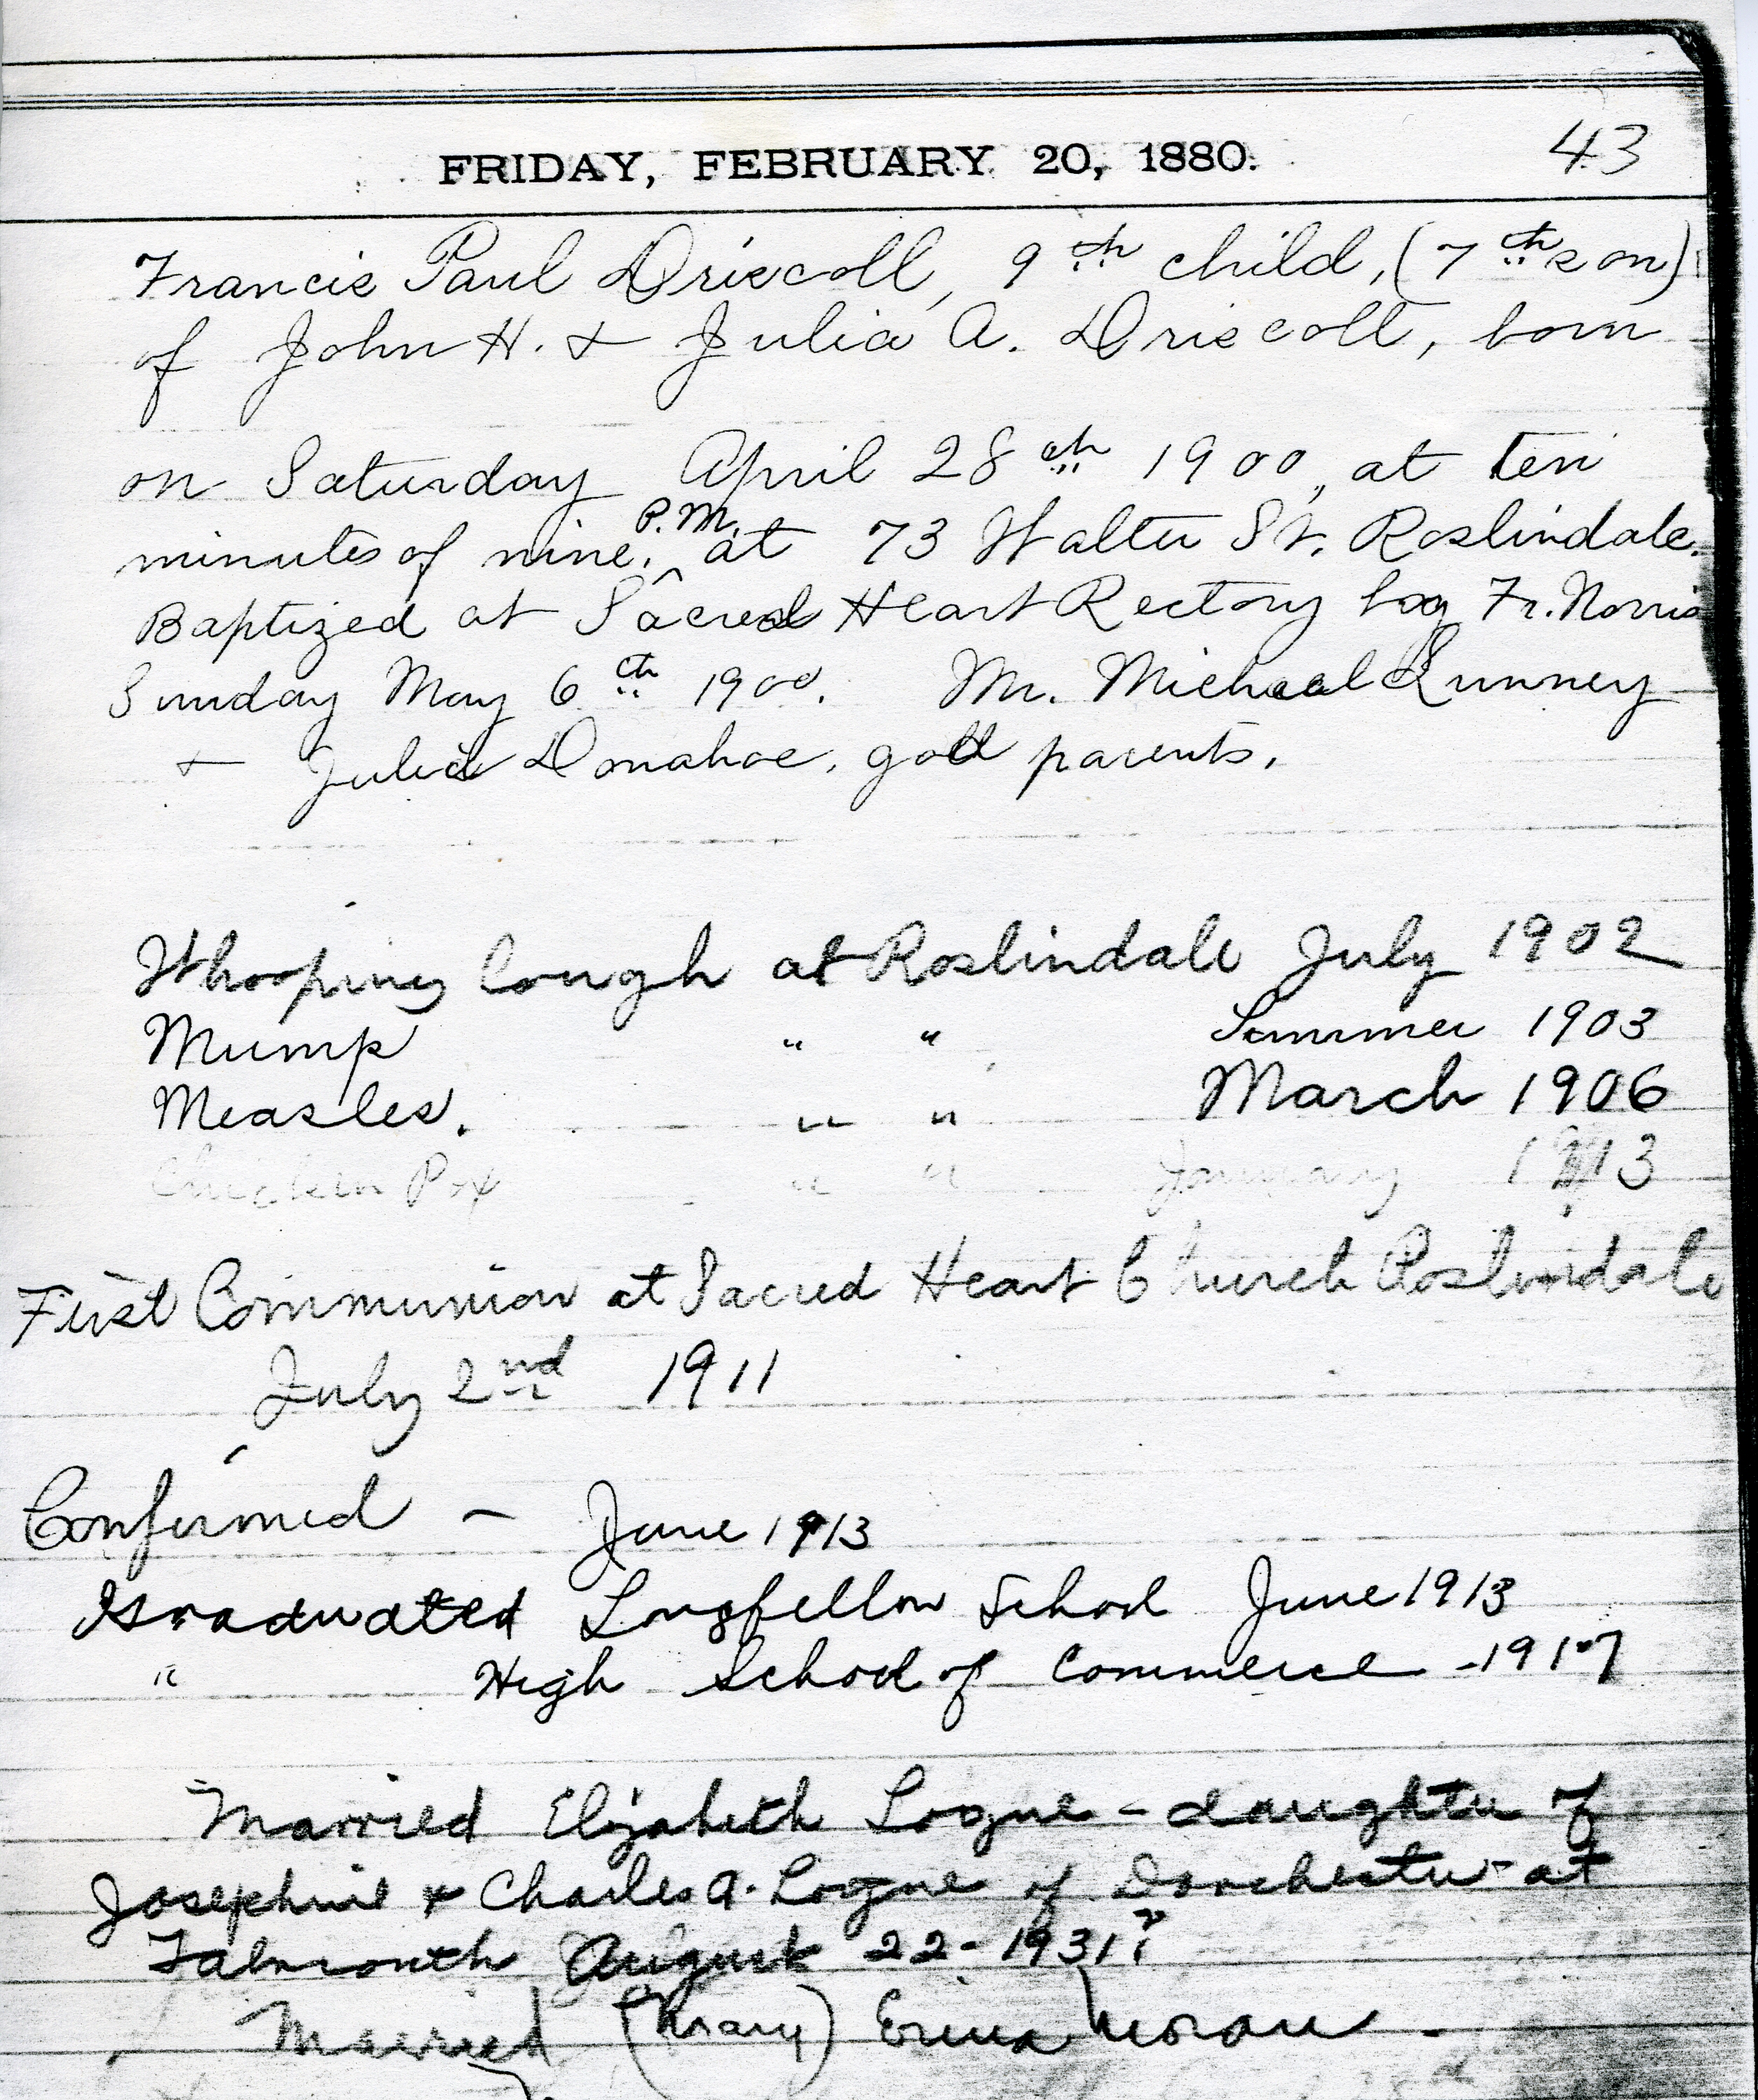 43
FRIDAY, FEBRUARY 20, 1880.
Francis Paul Driscoll, 9th child, (7th son)
of John H. & Julia A. Driscoll, born
on Saturday April 28th 1900, at ten
minutes of nine, P.M. at 73 Walter St. Roslindale.
Baptized at Sacred Heart Rectory by Fr. Norris
Sunday May 6th 1900. Mr. Michael Lunney
& Julia Donahoe, god parents.
Whooping Cough at Roslindale July 1902
Mump " " Summer 1903
Measles. " " March 1906
Chicken Pox " " January 1913
First Communion at Sacred Heart Church Roslindale
July 2nd 1911
Confirmed - June 1913
Graduated Longfellow School June 1913
" High School of Commerce - 1917
Married Elizabeth Logue - daughter of
Josephine & Charles A. Logue of Dorchester - at
Falmouth August 22 - 1931?
Married (Mary) Erina Moran -